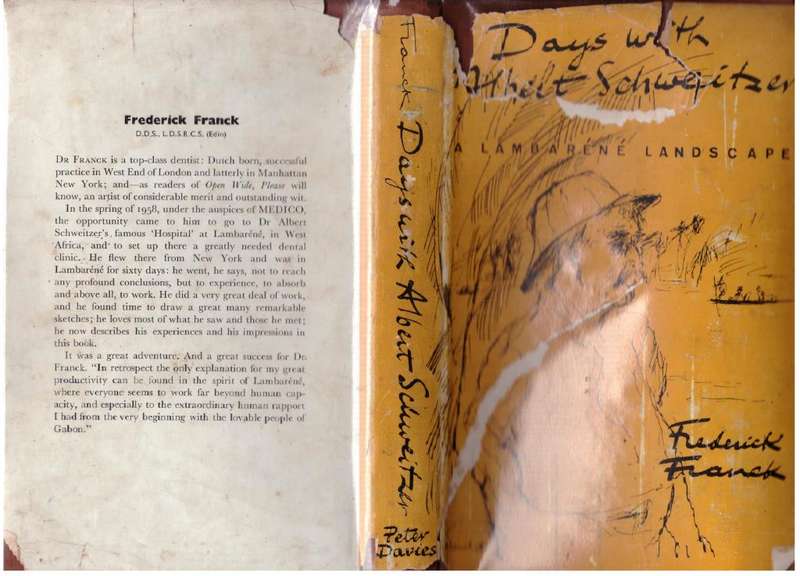 Frederick Franck
D.D.S., L.D.S.R.C.S. (Edin)
DR FRANCK is a top-class dentist: Dutch born, successful
practice in West End of London and latterly in Manhattan
New York; and—as readers of Open Wide, Please will
know, an artist of considerable merit and outstanding wit.
In the spring of 1958, under the auspices of MEDICO,
the opportunity came to him to go to Dr Albert
Schweitzer's famous 'Hospital' at Lambaréné, in West
Africa, and to set up there a greatly needed dental
clinic. He flew there from New York and was in
Lambaréné for sixty days: he went, he says, not to reach
any profound conclusions, but to experience, to absorb
and above all, to work. He did a very great deal of work,
and he found time to draw a great many remarkable
sketches; he loves most of what he saw and those he met;
he now describes his experiences and his impressions in
this book.
It was a great adventure. And a great success for Dr.
Franck. "In retrospect the only explanation for my great
productivity can be found in the spirit of Lambaréné,
where everyone seems to work far beyond human cap-
acity, and especially to the extraordinary human rapport
I had from the very beginning with the lovable people of
Gabon."
Franck Days with Albert Schweitzer
Peter
Davies
Days with
Albert Schweitzer
A LAMBARÉNÉ LANDSCAPE
Frederick
Franck